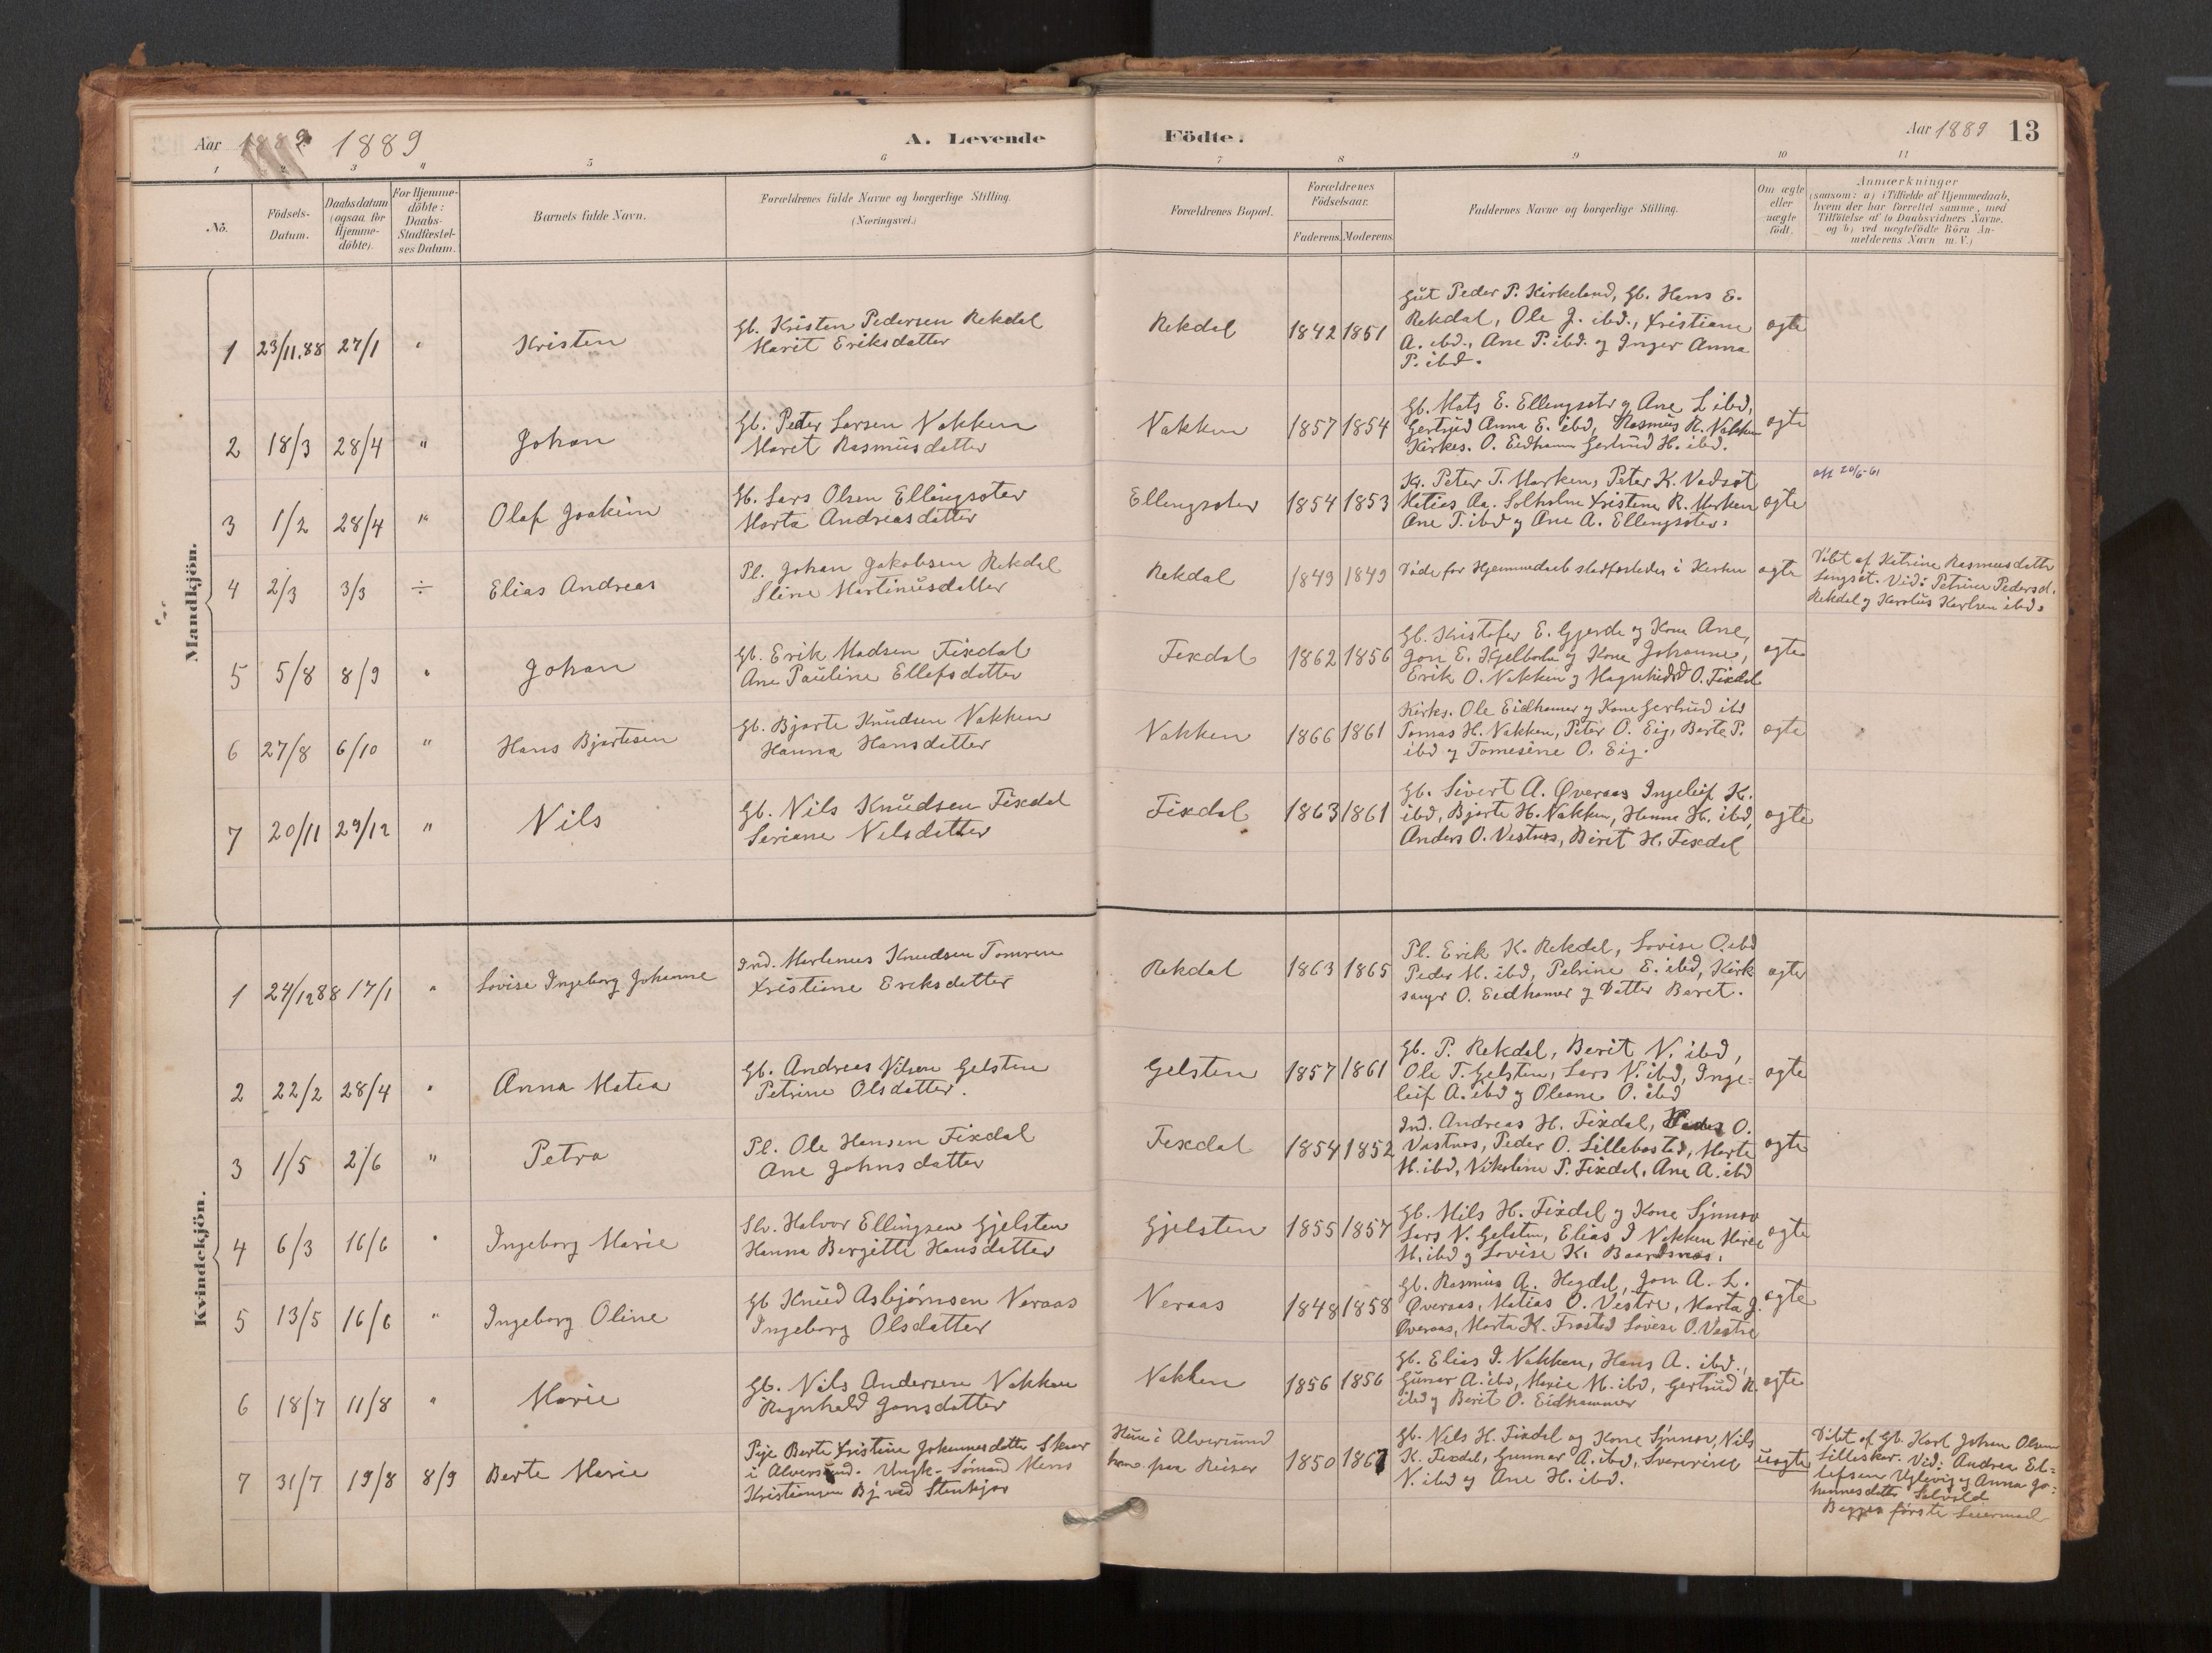 Aar 1889 1889 A. Levende Födte. Aar 1889 13
1 2 3 4 5 6 7 8 9 10 11
No. Födsels-Datum. Daabsdatum (ogsaa for Hjemme-döbte). For Hjemme-döbte: Daabs-Stadfæstel-ses Datum. Barnets fulde Navn. Forældrenes fulde Navne og borgerlige Stilling. (Næringsvei.) Forældrenes Bopæl. Forældrenes Födselsaar. Faderens. Moderens. Faddernes Navne og borgerlige Stilling. Om ægte eller uægte födt. Anmærkninger
(saasom: a) i Tilfælde af Hjemmedaab,
hvem der har forrettet samme, med
Tilföielse af to Daabsvidners Navne,
og b) ved uægtefödte Börn An-
melderens Navn m. V.)
Mandkjön.
1 23/11.88 27/1 " Kristen
Gb. Kristen Pedersen Rekdal
Marit Eriksdatter
Rekdal 1842 1851
Gut Peder P. Kirkeland, Gb. Hans E.
Rekdal, Ole J. ibd., Kristiane
A. ibd., Ane P. ibd. og Inger Anna
P. ibd.
ægte
2 18/3 28/4 " Johan
Gb. Peder Larsen Nakken
Maret Rasmusdatter
Nakken 1857 1854
Gb. Mats E. Ellingsæter og Ane L ibd,
Gertrud Anna E. ibd, Rasmus R. Nakken
Kirkes. O. Eidhamer Gertrud H. ibd.
ægte
3 1/2 28/4 " Olaf Joakim
Gb. Lars Olsen Ellingsæter
Marta Andreasdatter
Ellingsæter 1854 1853
K. Peter T. Marken, Peter K. Vadsæt
Matias Aa. Solholm Kristine R. Marken
Ane T. ibd og Ane A. Ellingsæter.
ægte
att 20/6-61
4 2/3 3/3 ÷ Elias Andreas
Pl. Johan Jakobsen Rekdal
Sline Martinusdatter
Rekdal 1849 1849
Døde før Hjemmedaab stadfæstedes i Kirken
ægte
Døbt af Katrine Rasmusdatter
Langsæt. Vid: Petrine Pedersd.
Rekdal og Karolus Karlsen ibd.
5 5/8 8/9 " Johan
Gb. Erik Madsen Fixdal
Ane Pauline Ellefsdatter
Fixdal 1862 1856
Gb. Kristofer E. Gjerde og Kone Ane,
Jon E. Kjelbotn og Kone Johanne,
Erik O. Nakken og Magnhild O. Fixdal
ægte
6 27/8 6/10 " Hans Bjartesen
Gb. Bjarte Knudsen Nakken
Hanna Hansdatter
Nakken 1866 1861
Kirks. Ole Eidhamer og Kone Gertrud ibd
Tomas H. Nakken, Peter O. Eig, Berte P.
ibd og Tomesine O. Eig.
ægte
7 20/11 29/12 " Nils
Gb. Nils Knudsen Fixdal
Seriane Nilsdatter
Fixdal 1863 1861
Gb. Sivert A. Øveraas Ingeleif K.
ibd, Bjarte H. Nakken, Hanne H. ibd,
Anders O. Vestnes, Birit H. Fixdal
ægte
Kvindekjön.
1 24/12 88 17/1 " Lovise Ingeborg Johanne
Ind. Martinus Knudsen Tomren
Kristiane Eriksdatter
Rekdal 1863 1865
Pl. Erik K. Rekdal, Lovise O. ibd
Peder M. ibd, Petrine E. ibd, Kirk
sanger O. Eidhamer og Datter Beret.
ægte
2 22/2 28/4 " Anna Matea
Gb. Andreas Nilsen Gelsten
Petrine Olsdatter.
Gelsten 1857 1861
Gb. P. Rekdal, Berit N. ibd,
Ole T. Gelsten, Lars N. ibd, Inge-
leif A. ibd og Oleane O. ibd
ægte
3 1/5 2/6 " Petra
Pl. Ole Hansen Fixdal
Ane Johnsdatter
Fixdal 1854 1852
Ind. Andreas H. Fixdal, O.
Vestnes, Peder O. Lillebostad, Marte
M. ibd, Nikoline P. Fixdal, Ane A. ibd
ægte
4 6/3 16/6 " Ingeborg Marie
Slv. Halvor Ellingsen Gjelsten
Hanna Bergitte Hansdatter
Gjelsten 1855 1857
Gb. Nils H. Fixdal og Kone Synnøv
Lars N. Gelsten, Elias I Nakken Marie
M. ibd og Lovise K. Baardsnes.
ægte
5 13/5 16/6 " Ingeborg Oline
Gb Knud Asbjørnsen Neraas
Ingeborg Olsdatter
Neraas 1848 1858
Gb. Rasmus A. Hagdal, Jon A. L.
Øveraas, Matias O. Vestre, Marta J.
Øveraas, Marta K. Frostad Lovise O. Vestre
ægte
6 18/7 11/8 " Marie
Gb. Nils Andersen Nakken
Ragnhild Jonsdatter
Nakken 1856 1856
Gb. Elias I. Nakken, Hans A. ibd.,
Gunar A. ibd, Marie M. ibd, Gertrud R.
ibd og Berit O. Eidhammer
ægte
7 31/7 19/8 8/9 Berte Marie
Pige Berte Kristine Johannesdatter Skaar
i Alversund. Ungk. Sømand Mons
Kristiansen Bj ved Stenkjær
Hun i Alversund
han paa Reiser
1850 1867
Gb. Nils H. Fixdal og Kone Synnøv, Nils
K. Fixdal, Gunnar A. ibd,
N. ibd og Ane H. ibd.
uægte
Døbt af Gb. Karl Johan Olsen
Lilleskar. Vid: Andrea El-
lefsen og Anna Jo-
hannesdatter
Begges første Leiermaal